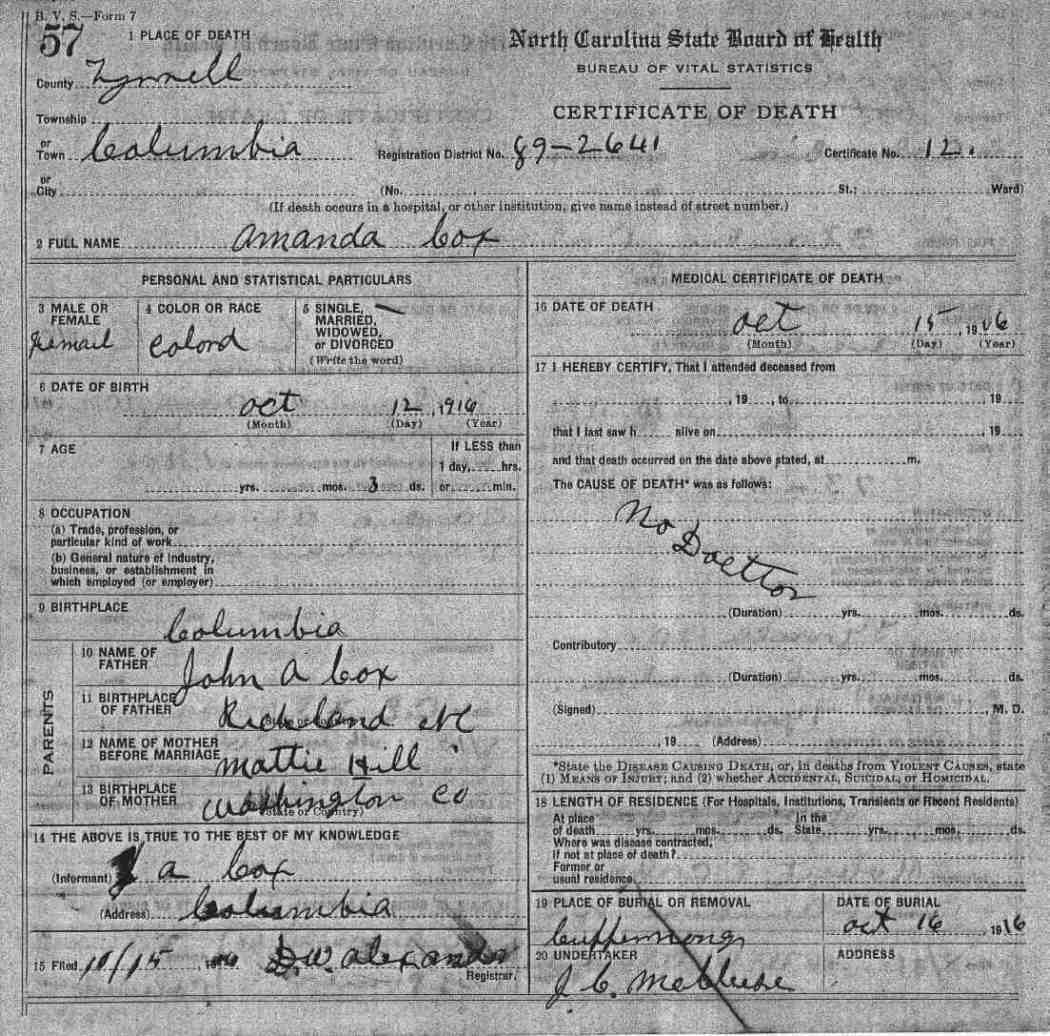 B. V. S.—Form 7
57
1 PLACE OF DEATH
County Tyrrell
Township
or
Town Columbia
or
City
North Carolina State Board of Health
BUREAU OF VITAL STATISTICS
CERTIFICATE OF DEATH
Registration District No. 89-2641 Certificate No. 12.
(No. St.; Ward)
(If death occurs in a hospital, or other institution, give name instead of street number.)
2 FULL NAME Amanda Cox
PERSONAL AND STATISTICAL PARTICULARS
3 MALE OR
FEMALE
Femail
4 COLOR OR RACE
Colord
5 SINGLE,
MARRIED,
WIDOWED,
or DIVORCED
(Write the word)
6 DATE OF BIRTH
Oct 12, 1916
(Month) (Day) (Year)
7 AGE
yrs. mos. 3 ds.
If LESS than
1 day, hrs.
or min.
8 OCCUPATION
(a) Trade, profession, or
particular kind of work
(b) General nature of industry,
business, or establishment in
which employed (or employer)
9 BIRTHPLACE
Columbia
PARENTS
10 NAME OF
FATHER
John A Cox
11 BIRTHPLACE
OF FATHER
Richland NC
12 NAME OF MOTHER
BEFORE MARRIAGE
Mattie Hill
13 BIRTHPLACE
OF MOTHER
Washington Co
(State or Country)
14 THE ABOVE IS TRUE TO THE BEST OF MY KNOWLEDGE
(Informant) J a Cox
(Address) Columbia
15 Filed 10/15 D.W. Alexander
Registrar.
MEDICAL CERTIFICATE OF DEATH
16 DATE OF DEATH
Oct 15, 1916
(Month) (Day) (Year)
17 I HEREBY CERTIFY, That I attended deceased from
, 19 , to , 19
that I last saw h alive on , 19
and that death occurred on the date above stated, at m.
The CAUSE OF DEATH* was as follows:
No Docttor
(Duration) yrs. mos. ds.
Contributory
(Duration) yrs. mos. ds.
(Signed) , M. D.
, 19 (Address)
*State the DISEASE CAUSING DEATH, or, in deaths from VIOLENT CAUSES, state
(1) MEANS OF INJURY; and (2) whether ACCIDENTAL, SUICIDAL, or HOMICIDAL.
18 LENGTH OF RESIDENCE (For Hospitals, Institutions, Transients or Recent Residents)
At place In the
of death yrs. mos. ds. State yrs. mos. ds.
Where was disease contracted,
If not at place of death?
Former or
usual residence
19 PLACE OF BURIAL OR REMOVAL
DATE OF BURIAL
Oct 16 1916
20 UNDERTAKER
J C.
ADDRESS